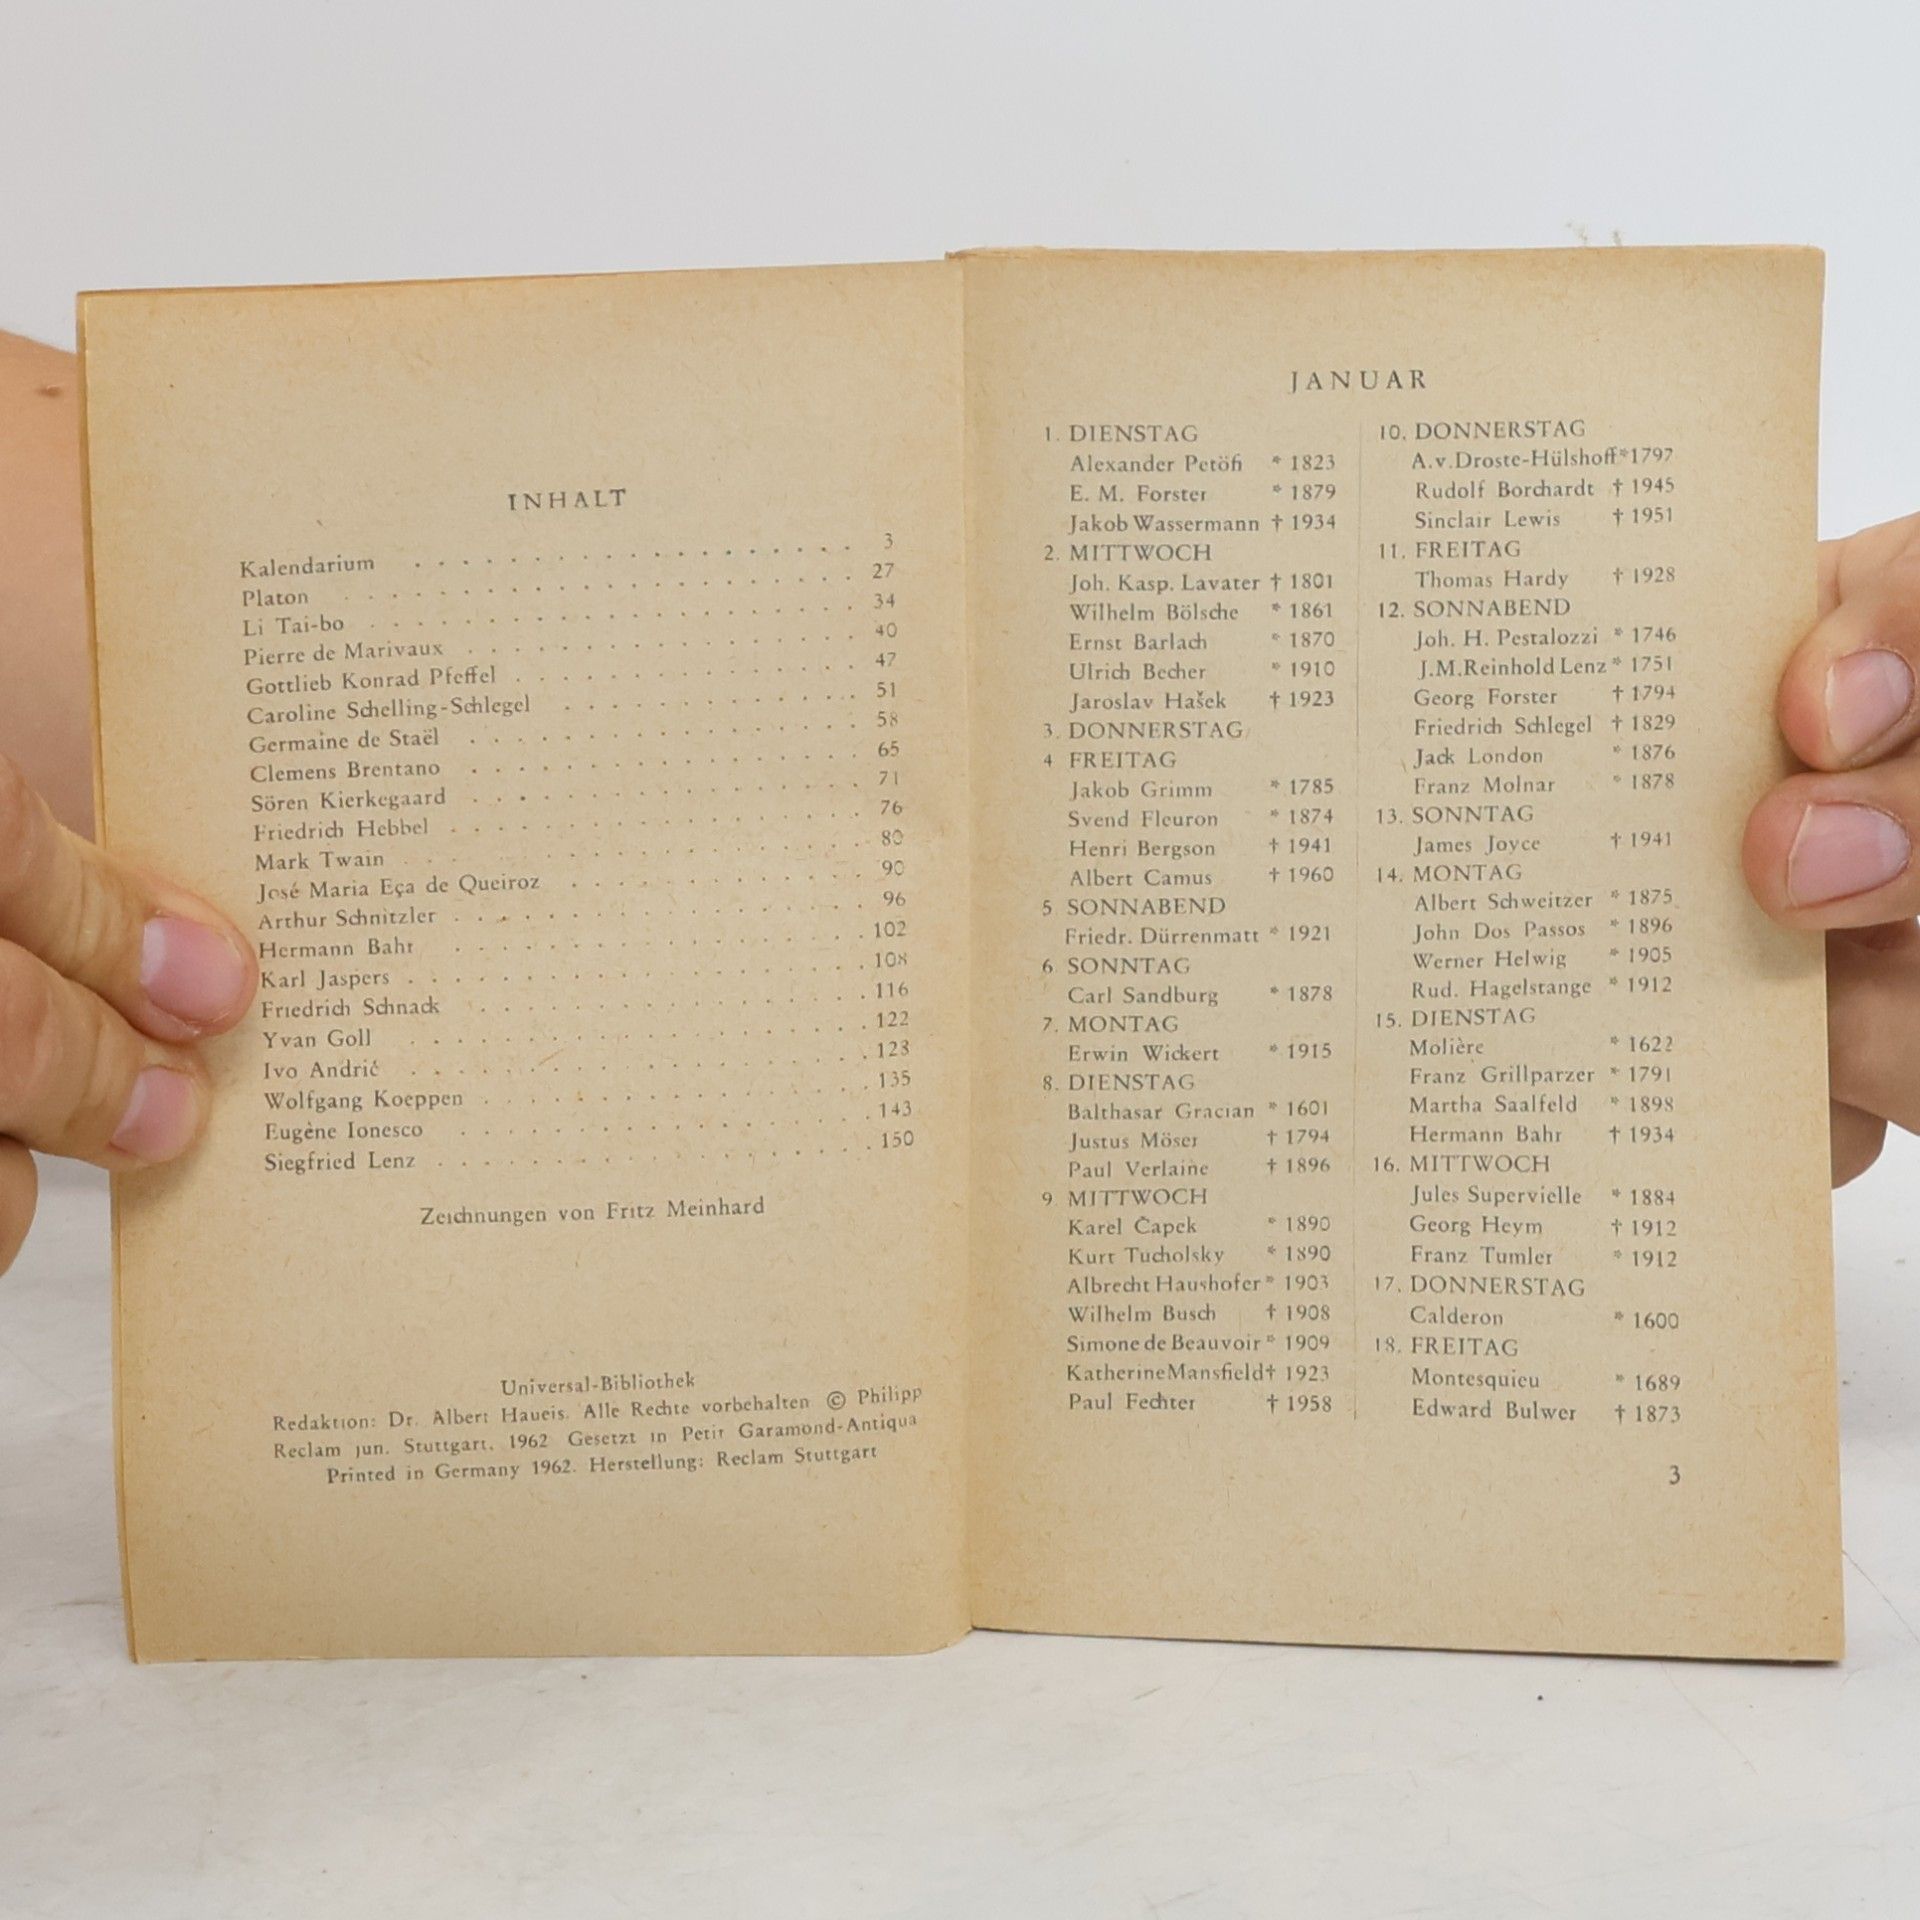 INHALT
Kalendarium . . . . . . . . . . . . . . . . . . . 3
Platon . . . . . . . . . . . . . . . . . . . . . . 27
Li Tai-bo . . . . . . . . . . . . . . . . . . . . . 34
Pierre de Marivaux . . . . . . . . . . . . . . . . . 40
Gottlieb Konrad Pfeffel . . . . . . . . . . . . . . . 47
Caroline Schelling-Schlegel . . . . . . . . . . . . . 51
Germaine de Staël . . . . . . . . . . . . . . . . . 58
Clemens Brentano . . . . . . . . . . . . . . . . . 65
Sören Kierkegaard . . . . . . . . . . . . . . . . . 71
Friedrich Hebbel . . . . . . . . . . . . . . . . . . 76
Mark Twain . . . . . . . . . . . . . . . . . . . . 80
José Maria Eça de Queiroz . . . . . . . . . . . . . 90
Arthur Schnitzler . . . . . . . . . . . . . . . . . . 96
Hermann Bahr . . . . . . . . . . . . . . . . . . 102
Karl Jaspers . . . . . . . . . . . . . . . . . . . . 108
Friedrich Schnack . . . . . . . . . . . . . . . . . 116
Yvan Goll . . . . . . . . . . . . . . . . . . . . 122
Ivo Andrić . . . . . . . . . . . . . . . . . . . . 128
Wolfgang Koeppen . . . . . . . . . . . . . . . . . 135
Eugène Ionesco . . . . . . . . . . . . . . . . . . 143
Siegfried Lenz . . . . . . . . . . . . . . . . . . . 150
Zeichnungen von Fritz Meinhard
Universal-Bibliothek
Redaktion: Dr. Albert Haueis. Alle Rechte vorbehalten © Philipp
Reclam jun. Stuttgart, 1962 Gesetzt in Petit Garamond-Antiqua
Printed in Germany 1962. Herstellung: Reclam Stuttgart
JANUAR
1. DIENSTAG
Alexander Petöfi * 1823
E. M. Forster * 1879
Jakob Wassermann † 1934
2. MITTWOCH
Joh. Kasp. Lavater † 1801
Wilhelm Bölsche * 1861
Ernst Barlach * 1870
Ulrich Becher * 1910
Jaroslav Hašek † 1923
3. DONNERSTAG
4 FREITAG
Jakob Grimm * 1785
Svend Fleuron * 1874
Henri Bergson † 1941
Albert Camus † 1960
5 SONNABEND
Friedr. Dürrenmatt * 1921
6 SONNTAG
Carl Sandburg * 1878
7. MONTAG
Erwin Wickert * 1915
8. DIENSTAG
Balthasar Gracian * 1601
Justus Möser † 1794
Paul Verlaine † 1896
9 MITTWOCH
Karel Čapek * 1890
Kurt Tucholsky * 1890
Albrecht Haushofer * 1903
Wilhelm Busch † 1908
Simone de Beauvoir * 1909
Katherine Mansfield † 1923
Paul Fechter † 1958
10. DONNERSTAG
A. v. Droste-Hülshoff * 1797
Rudolf Borchardt † 1945
Sinclair Lewis † 1951
11. FREITAG
Thomas Hardy † 1928
12. SONNABEND
Joh. H. Pestalozzi * 1746
J. M. Reinhold Lenz * 1751
Georg Forster † 1794
Friedrich Schlegel † 1829
Jack London * 1876
Franz Molnar * 1878
13. SONNTAG
James Joyce † 1941
14. MONTAG
Albert Schweitzer * 1875
John Dos Passos * 1896
Werner Helwig * 1905
Rud. Hagelstange * 1912
15. DIENSTAG
Molière * 1622
Franz Grillparzer * 1791
Martha Saalfeld * 1898
Hermann Bahr † 1934
16. MITTWOCH
Jules Supervielle * 1884
Georg Heym † 1912
Franz Tumler * 1912
17. DONNERSTAG
Calderon * 1600
18. FREITAG
Montesquieu * 1689
Edward Bulwer † 1873
3